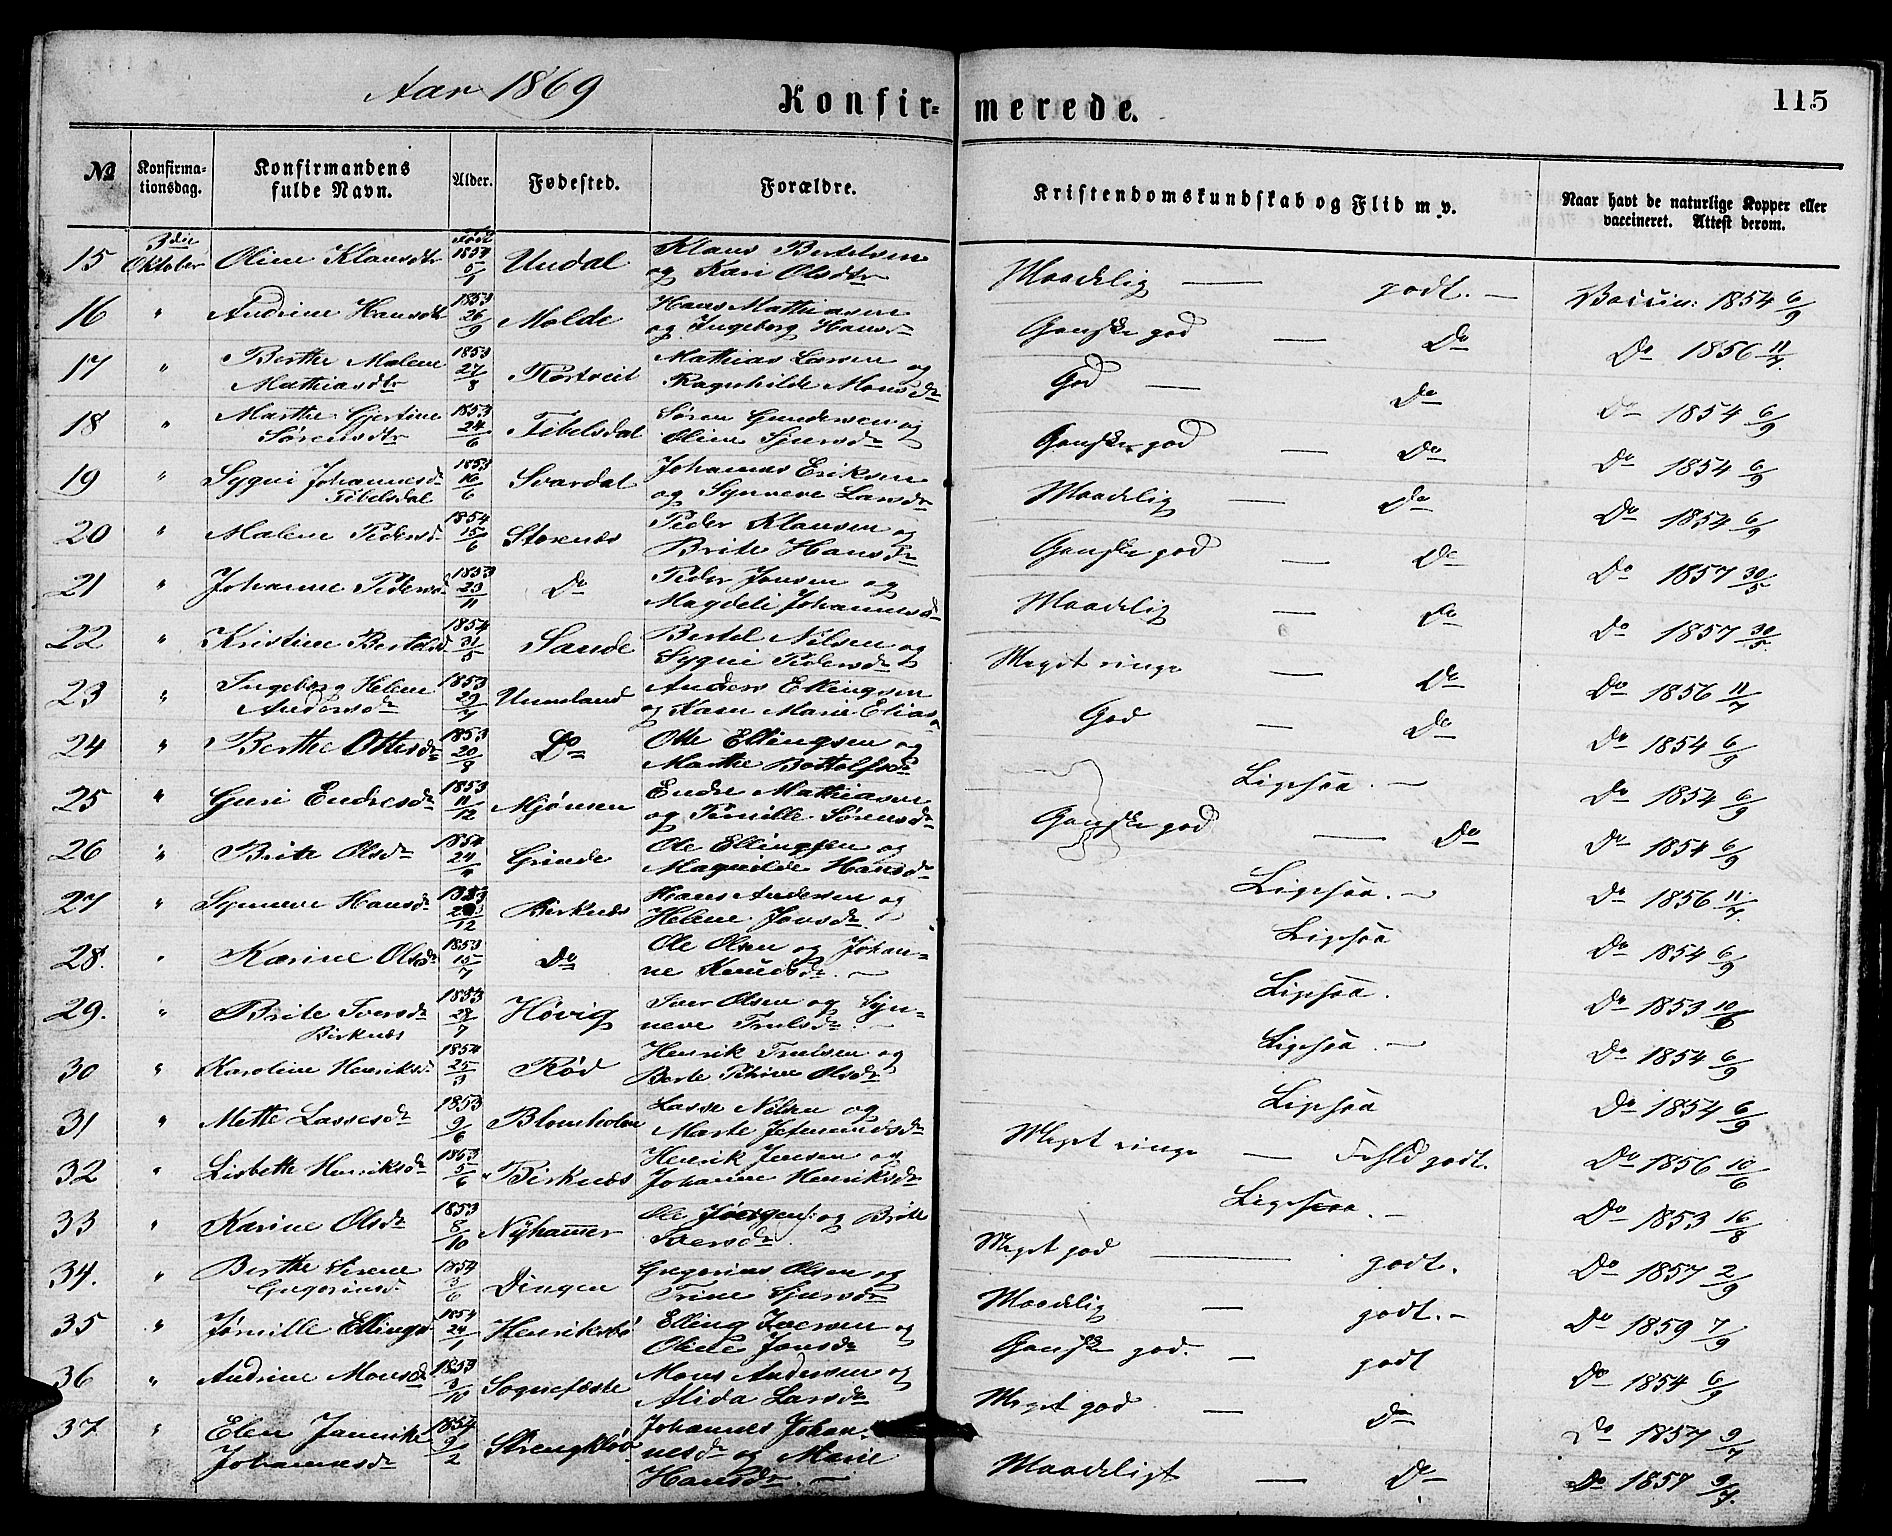 Aar 1869
Konfir=merede.
115
№ | Konfirmationsdag. | Konfirmandens fulde Navn. | Alder. | Fødested. | Forældre. | Kristendomskundskab og Flid m. v. | Naar havt de naturlige Kopper eller vaccineret. Attest derom.
15 | 3die Oktober | Oline Klausdtr | født 1854 5/ | Undal | Klaus Bertelsen og Kari Olsdtr | Maadelig — godt. — | Vaccin: 1854 6/9
16 | " | Andrine Hansdtr | 1853 26/9 | Molde | Hans Mathiasen og Ingeborg Hansdr | Ganske god — Do | Do 1856 11/7
17 | " | Berthe Malene Mathiasdtr | 1853 27/8 | Kortveit | Mathias Larsen og Ragnhilde Monsdr | God — Do | Do 1854 6/9
18 | " | Marthe Gjertine Sørensdtr | 1853 24/6 | Tibelsdal | Søren Gundersen og Oline Sjursdr | Ganske god — Do | Do 1854 6/9
19 | " | Sygni Johannesd Tibelsdal | 1853 16/6 | Svardal | Johannes Eriksen og Synneve Larsdr | Maadelig — Do | Do 1854 6/9
20 | " | Malene Pedersd | 1854 15/6 | Storenæs | Peder Klausen og Brite Hansdr | Ganske god — Do | Do 1857 30/5
21 | " | Johanne Pedersd | 1853 23/11 | Do | Peder Jonsen og Magdeli Johannesdr | Maadelig — Do | Do 1857 30/5
22 | " | Kristine Bertelsd | 1854 31/5 | Sande | Bertel Nilsen og Sygni Pedersdr | Meget ringe — Do | Do 1856 11/7
23 | " | Ingeborg Helene Andersdr | 1853 29/7 | Unneland | Anders Ellingsen og Karn Marie Elias | God — Do | Do 1854 6/9
24 | " | Berthe Ottesdr | 1853 20/8 | Do | Otte Ellingsen og Marthe Bottolfsdr | Ligesaa. — | Do 1854 6/9
25 | " | Guri Endresdr | 1853 11/12 | Mjønsen | Endre Mathiasen og Pernille Sørensdr | Ganske god — Do | Do 1854 6/9
26 | " | Brite Olsdr | 1854 24/ | Grinde | Ole Ellingsen og Magnilde Hansdr | Ligesaa. — | Do 1856 11/7.
27 | " | Synneve Hansdr | 1853 /12 | Birknæs | Hans Andersen og Helene Jonsdr | Ligesaa | Do 1854 6/9
28. | " | Karine Olsdr | 1853 15/7 | Do | Ole Olsen og Johanne Knudsdr. — | Ligesaa. | Do 1853 10/6
29. | " | Brite Iversdr Birknæs | 1853 29/7 | Høvig | Iver Olsen og Synneve Trulsdr. — | Ligesaa. — | Do 1854 6/9
30 | " | Karoline Henriksd | 1854 25/3 | Rød | Henrik Trulsen og Berte Olsdr | Ligesaa | Do 1854 6/9
31 | " | Mette Lassesdr | 1853 9/6 | Blomholm | Lasse Nilsen og Marte Jetmundsdr | Meget ringe — Fohld godt. | Do 1856 10/6
32 | " | Lisbette Henriksdr | 1853 5/6 | Birknæs | Henrik Jensen og Johanne Henriksdr | Ligesaa. — | Do 1853 16/8
33 | " | Karine Olsdr | 1853 8/10 | Nyhammer | Ole Jørgens: og Brite Iversdr | Meget god — godt. | Do 1857 2/9
34. | " | Berthe Serene Gregoriusd | 1854 3/6 | Dingen | Gregorius Olsen og Trine Sjursdr | Maadelig — godt. — | Do 1859 7/9
35 | " | Jørnille Ellingsd | 1854 24/1 | Henriksbø | Elling Iversen og Oline Jonsdr | Ganske god. — godt | Do 1854 6/9
36 | " | Andrine Monsdr | 1853 3/10 | Sognefæste | Mons Andersen og Alida Larsdr | Meget god — Do | Do 1857 9/7
37 | " | Elen Jannike Johannesdr | 1854 9/2 | | Johannes Johannesdr og Marie Hansdr. — | Maadeligt — Do | Do 1857 9/7.